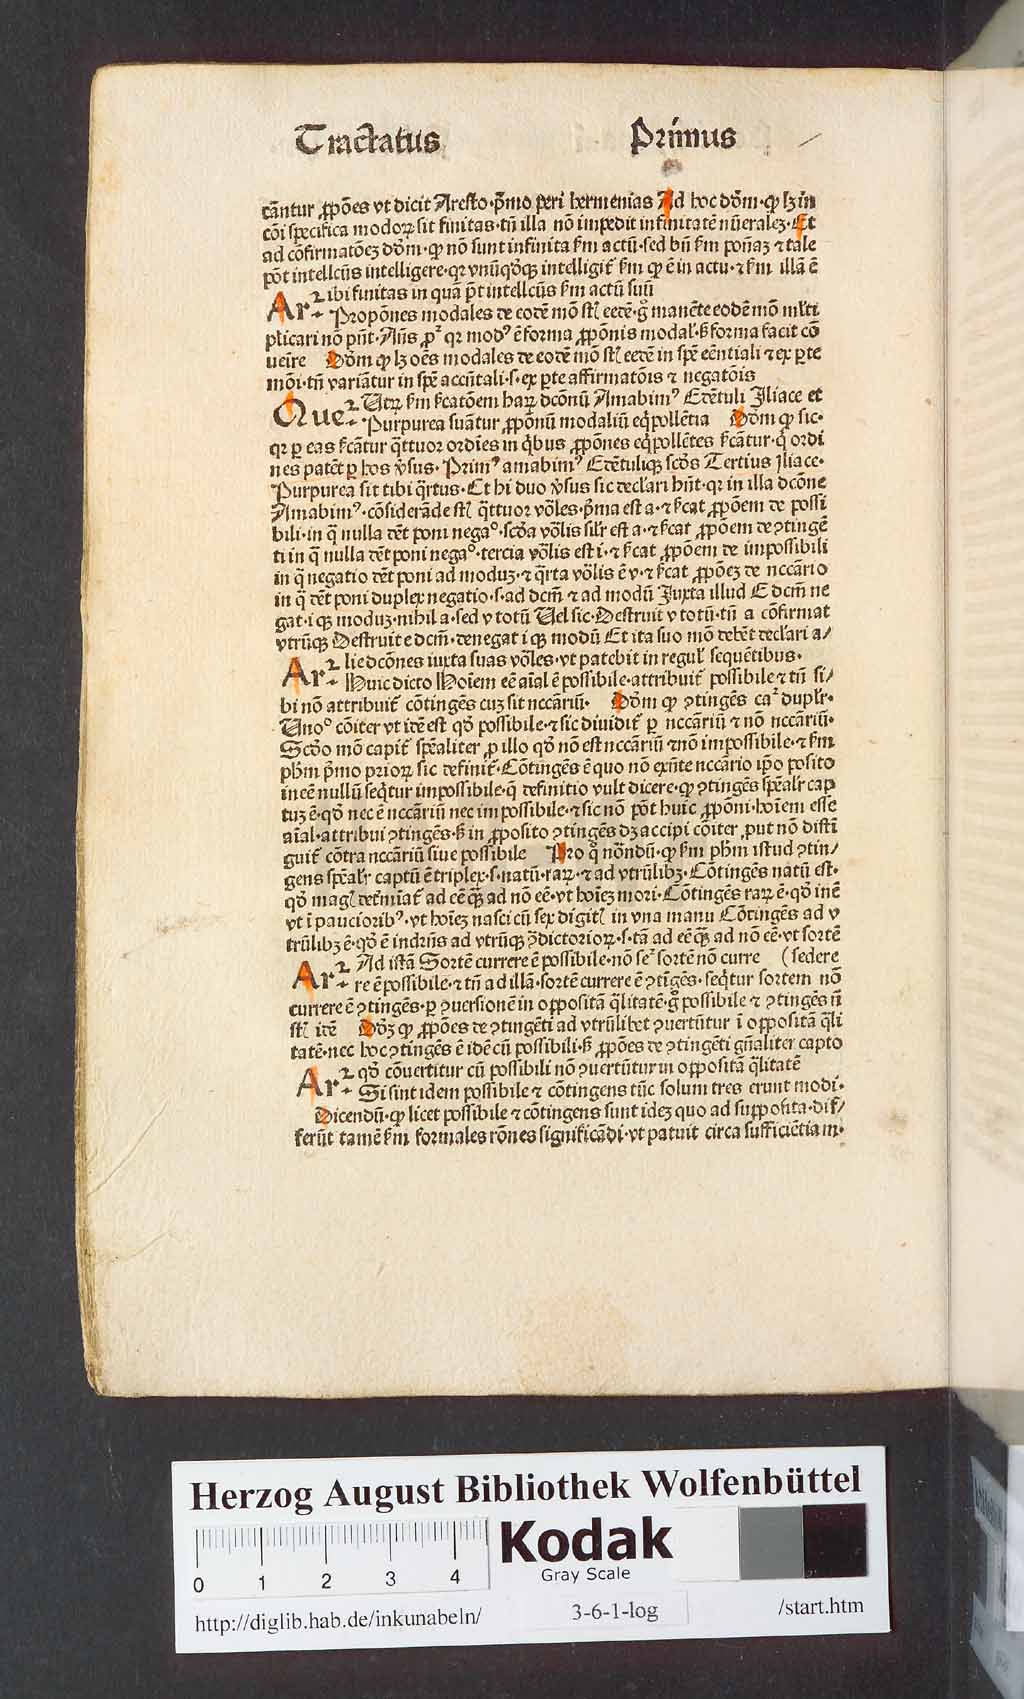 Tractatus Primus
cãntur ꝓpões vt dicit Aresto·p̃mo peri hermenias Ad hoc dõm·ꝙ lꝫ in
cõi specifica modoꝝ sit finitas·tñ illa nõ impedit infinitatẽ nũeralez·Et
ad cõfirmatõez dõm·ꝙ nõ sunt infinita ẜm actũ·sed bñ ẜm pоñaz ⁊ tale
põt intellcũs intelligere·qꝛ vnũqͦꝗ intelligit̃ ẜm ꝙ ẽ in actu·⁊ ẜm illã ẽ
Arꝛ ibi finitas in quã p̃t intellcũs ẜm actũ suũ
Propõnes modales de eodẽ mõ sũt eedẽ·g̊ manẽte eodẽ mõ ml̃ti
plicari nõ pñt·Añs ꝓꝛ qꝛ modꝰ ẽ forma ꝓpõnis modal̃·ẞ forma facit cõ
uenire Dõm ꝙ lꝫ oẽs modales de eodẽ mõ sũt eedẽ in spẽ eẽntiali ⁊ ex ꝑte
mõi·tñ variãtur in spẽ accñtali·s·ex ꝑte affirmatõis ⁊ negatõis
Queꝛ Utꝝ ẜm ẜcatõem haꝝ dcõnũ Amabimꝰ Edẽtuli Iliace et
Purpurea sumãtur ꝓpõnũ modaliũ eq̃pollẽtia Dõm ꝙ sic·
qꝛ ꝑ eas ẜcãtur q̃ttuor ordĩes in q̃bus ꝓpõnes eq̃pollẽtes ẜcãtur·q̃ ordi
nes patẽt ꝑ hos v̓sus·Primꝰ amabimꝰ Edẽtuliqꝫ scd̃s Tertius Iliace·
Purpurea sit tibi q̃rtus·Et hi duo v̓sus sic decl̃ari hñt·qꝛ in illa dcõne
Amabimꝰ·cõsiderãde sũt q̃ttuor võles·p̃ma est a·⁊ ẜcat ꝓpõem de possi
bili·in q̃ nulla dꝫ poni negaᵒ·scd̃a võlis silr̃ est a·⁊ ẜcat ꝓpõem de ꝯtingẽ
ti in q̃ nulla dꝫ poni negaᵒ·tercia võlis est i·⁊ ẜcat ꝓpõem de impossibili
in q̃ negatio dꝫ poni ad moduz·⁊ q̃rta võlis ẽ v·⁊ ẜcat ꝓpõez de nccãrio
in q̃ dꝫ poni duplex negatio·s·ad dcm̃ ⁊ ad modũ Juxta illud E dcm̃ ne
gat·i qꝫ moduz·nihil a·sed v totũ Uel sic·Destruit v totũ·tñ a cõfirmat
vtrũqꝫ Destruit e dcm̃·denegat i qꝫ modũ Et ita suo mõ debẽt decl̃ari a/
Arꝛ lie dcõnes iuxta suas võles·vt patebit in regul̃ sequẽtibus·
Huic dicto Hoĩem eẽ aĩal ẽ possibile·attribuit̃ possibile ⁊ tñ si/
bi nõ attribuit̃ cõtingẽs cuz sit nccãriũ· Dõm ꝙ ꝯtingẽs caꝛ duplr̃·
Unoᵒ cõiter vt idẽ est qd̃ possibile·⁊ sic diuidit̃ ꝑ nccãriũ ⁊ nõ nccãriũ·
Scd̃o mõ capit̃ spẽaliter ꝓ illo qd̃ nõ est nccãriũ ⁊ nõ impossibile·⁊ ẜm
phm̃ p̃mo prioꝝ sic definit̃·Cõtingẽs ẽ quo nõ exñte nccãrio ip̃o posito
in eẽ nullũ seq̃tur impossibile·q̃ definitio vult dicere·ꝙ ꝯtingẽs spẽalr̃ cap
tuz ẽ·qd̃ nec ẽ nccãriũ nec impossibile·⁊ sic nõ põt huic ꝓpõni·hoĩem esse
aĩal·attribui ꝯtingẽs·ẞ in ꝓposito ꝯtingẽs dꝫ accipi cõiter ꝓut nõ disti
guit̃ cõtra nccãriũ siue possibile Pro q̊ nõndũ·ꝙ ẜm phm̃ istud ꝯtin/
gens spẽalr̃ captũ ẽ triplex·s·natũ·raꝝ·⁊ ad vtrũlibꝫ·Cõtingẽs natũ est·
qd̃ magl̃ det̃miat̃ ad eẽ q̃ꝫ ad nõ eẽ·vt hoĩez mori·Cõtingẽs raꝝ ẽ·qd̃ inẽ
vt i paucioribꝰ·vt hoĩez nasci cũ sex digitl̃ in vna manu Cõtingẽs ad v
trũlibꝫ ẽ·qd̃ ẽ indrñs ad vtrũqꝫ ꝯ̃dictorioꝝ·s·tã ad eẽ q̃ꝫ ad nõ eẽ·vt sortẽ
Arꝛ Ad istã Sortẽ currere ẽ possibile·nõ seꝛ sortẽ nõ curre (sedere
re ẽ possibile·⁊ tñ ad illã·sortẽ currere ẽ ꝯtĩgẽs·seq̃tur sortem nõ
currere ẽ ꝯtingẽs·ꝑ ꝯuersionẽ in oppositã q̃litatẽ·g̊ possibile ⁊ ꝯtingẽs ñ
sũt idẽ Dõz ꝙ ꝓpões de ꝯtingẽti ad vtrũlibet ꝯuertũtur i oppositã q̃li
tatẽ·nec hoc ꝯtingẽs ẽ idẽ cũ possibili·ẞ ꝓpões de ꝯtingẽti gñaliter capto
Arꝛ qd̃ cõuertitur cũ possibili nõ ꝯuertũtur in oppositã q̃litatẽ
Si sint idem possibile ⁊ cõtingens tũc solum tres erunt modi·
Dicendũ·ꝙ licet possibile ⁊ cõtingens sunt idez quo ad supposita·dif/
ferũt tamẽ ẜm formales rõnes significãdi·vt patuit circa sufficiẽtiam·
Herzog August Bibliothek Wolfenbüttel
0 1 2 3 4
Kodak
Gray Scale
http://diglib.hab.de/inkunabeln/ 3-6-1-log /start.htm